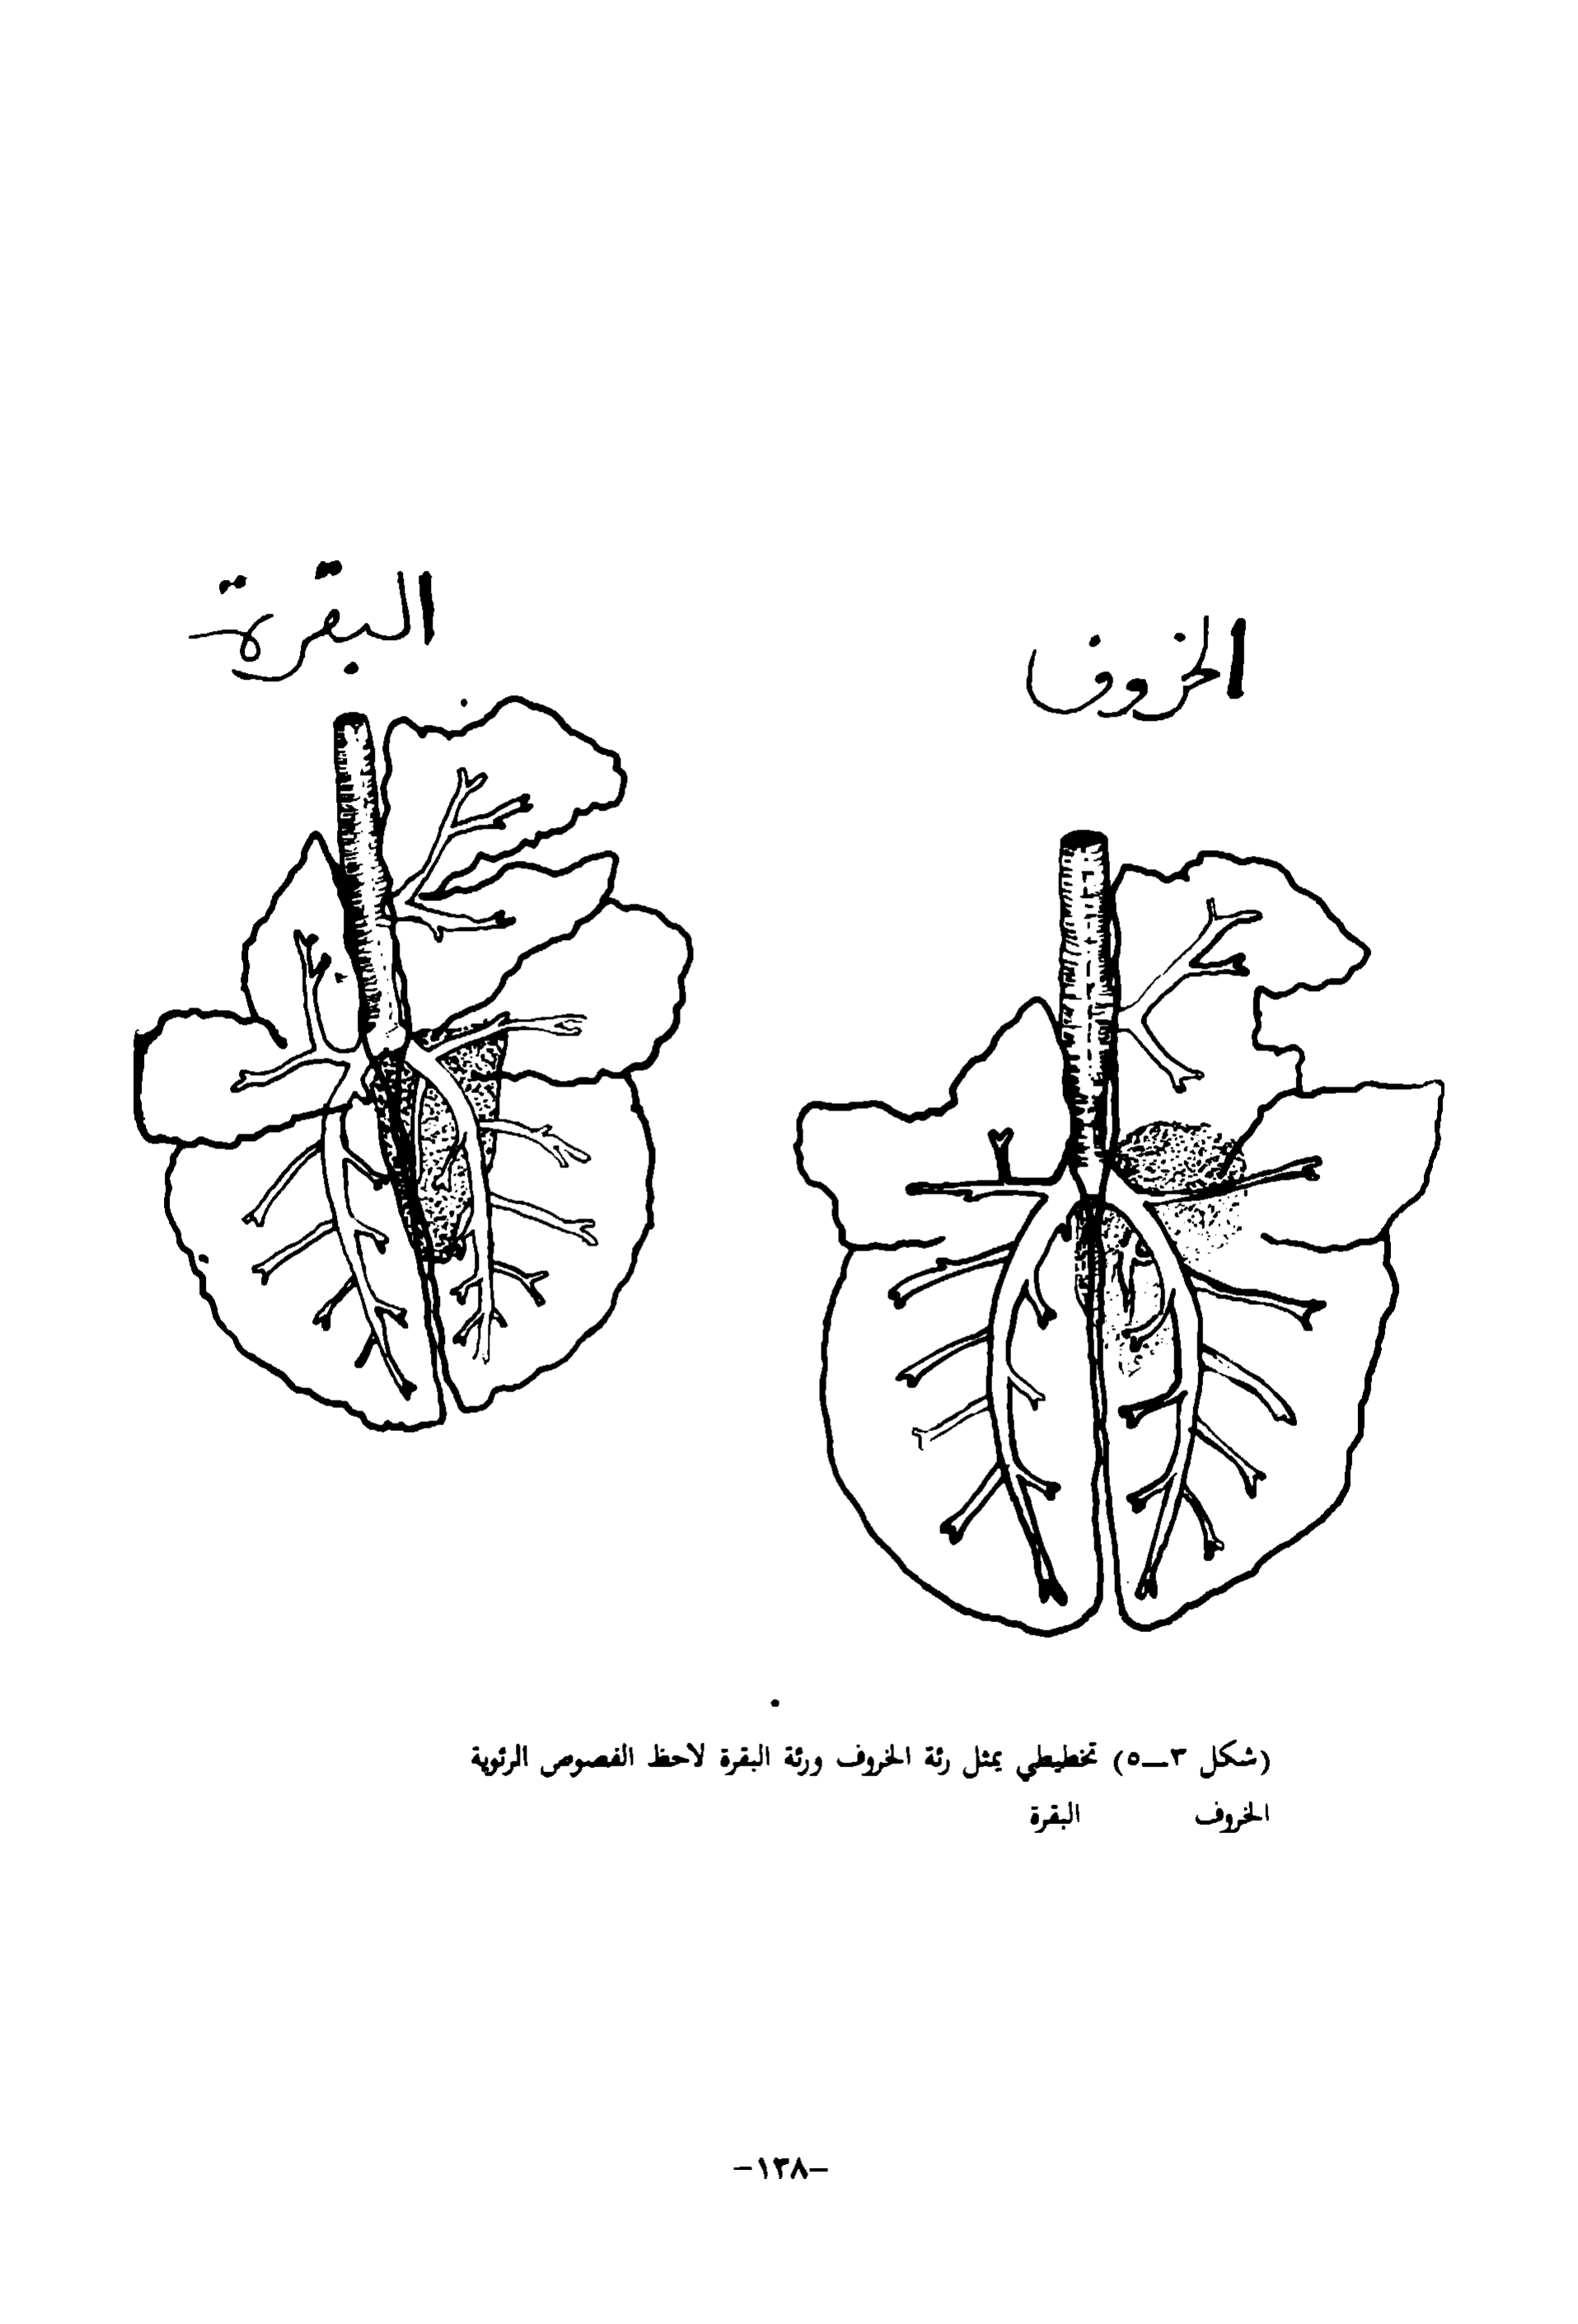 البقرة
الخروف
(شكل ٣_٥) تخطيطي يمثل رئة الخروف ورئة البقرة لاحظ الفصوص الرئوية
الخروف البقرة
-١٣٨-